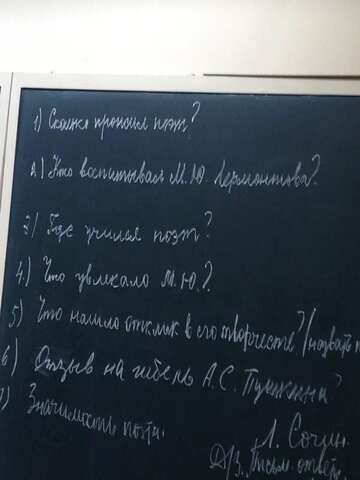 1) Сколько прожил поэт?
2) Кто воспитывал М.Ю. Лермонтова?
3) Где учился поэт?
4) Что увлекало М.Ю.?
5) Что нашло отклик в его творчестве? (назвать
6) Отзыв на гибель А.С. Пушкина?
7) Значимость поэта.
Л. Сочин.
Д/З. Письм. ответы